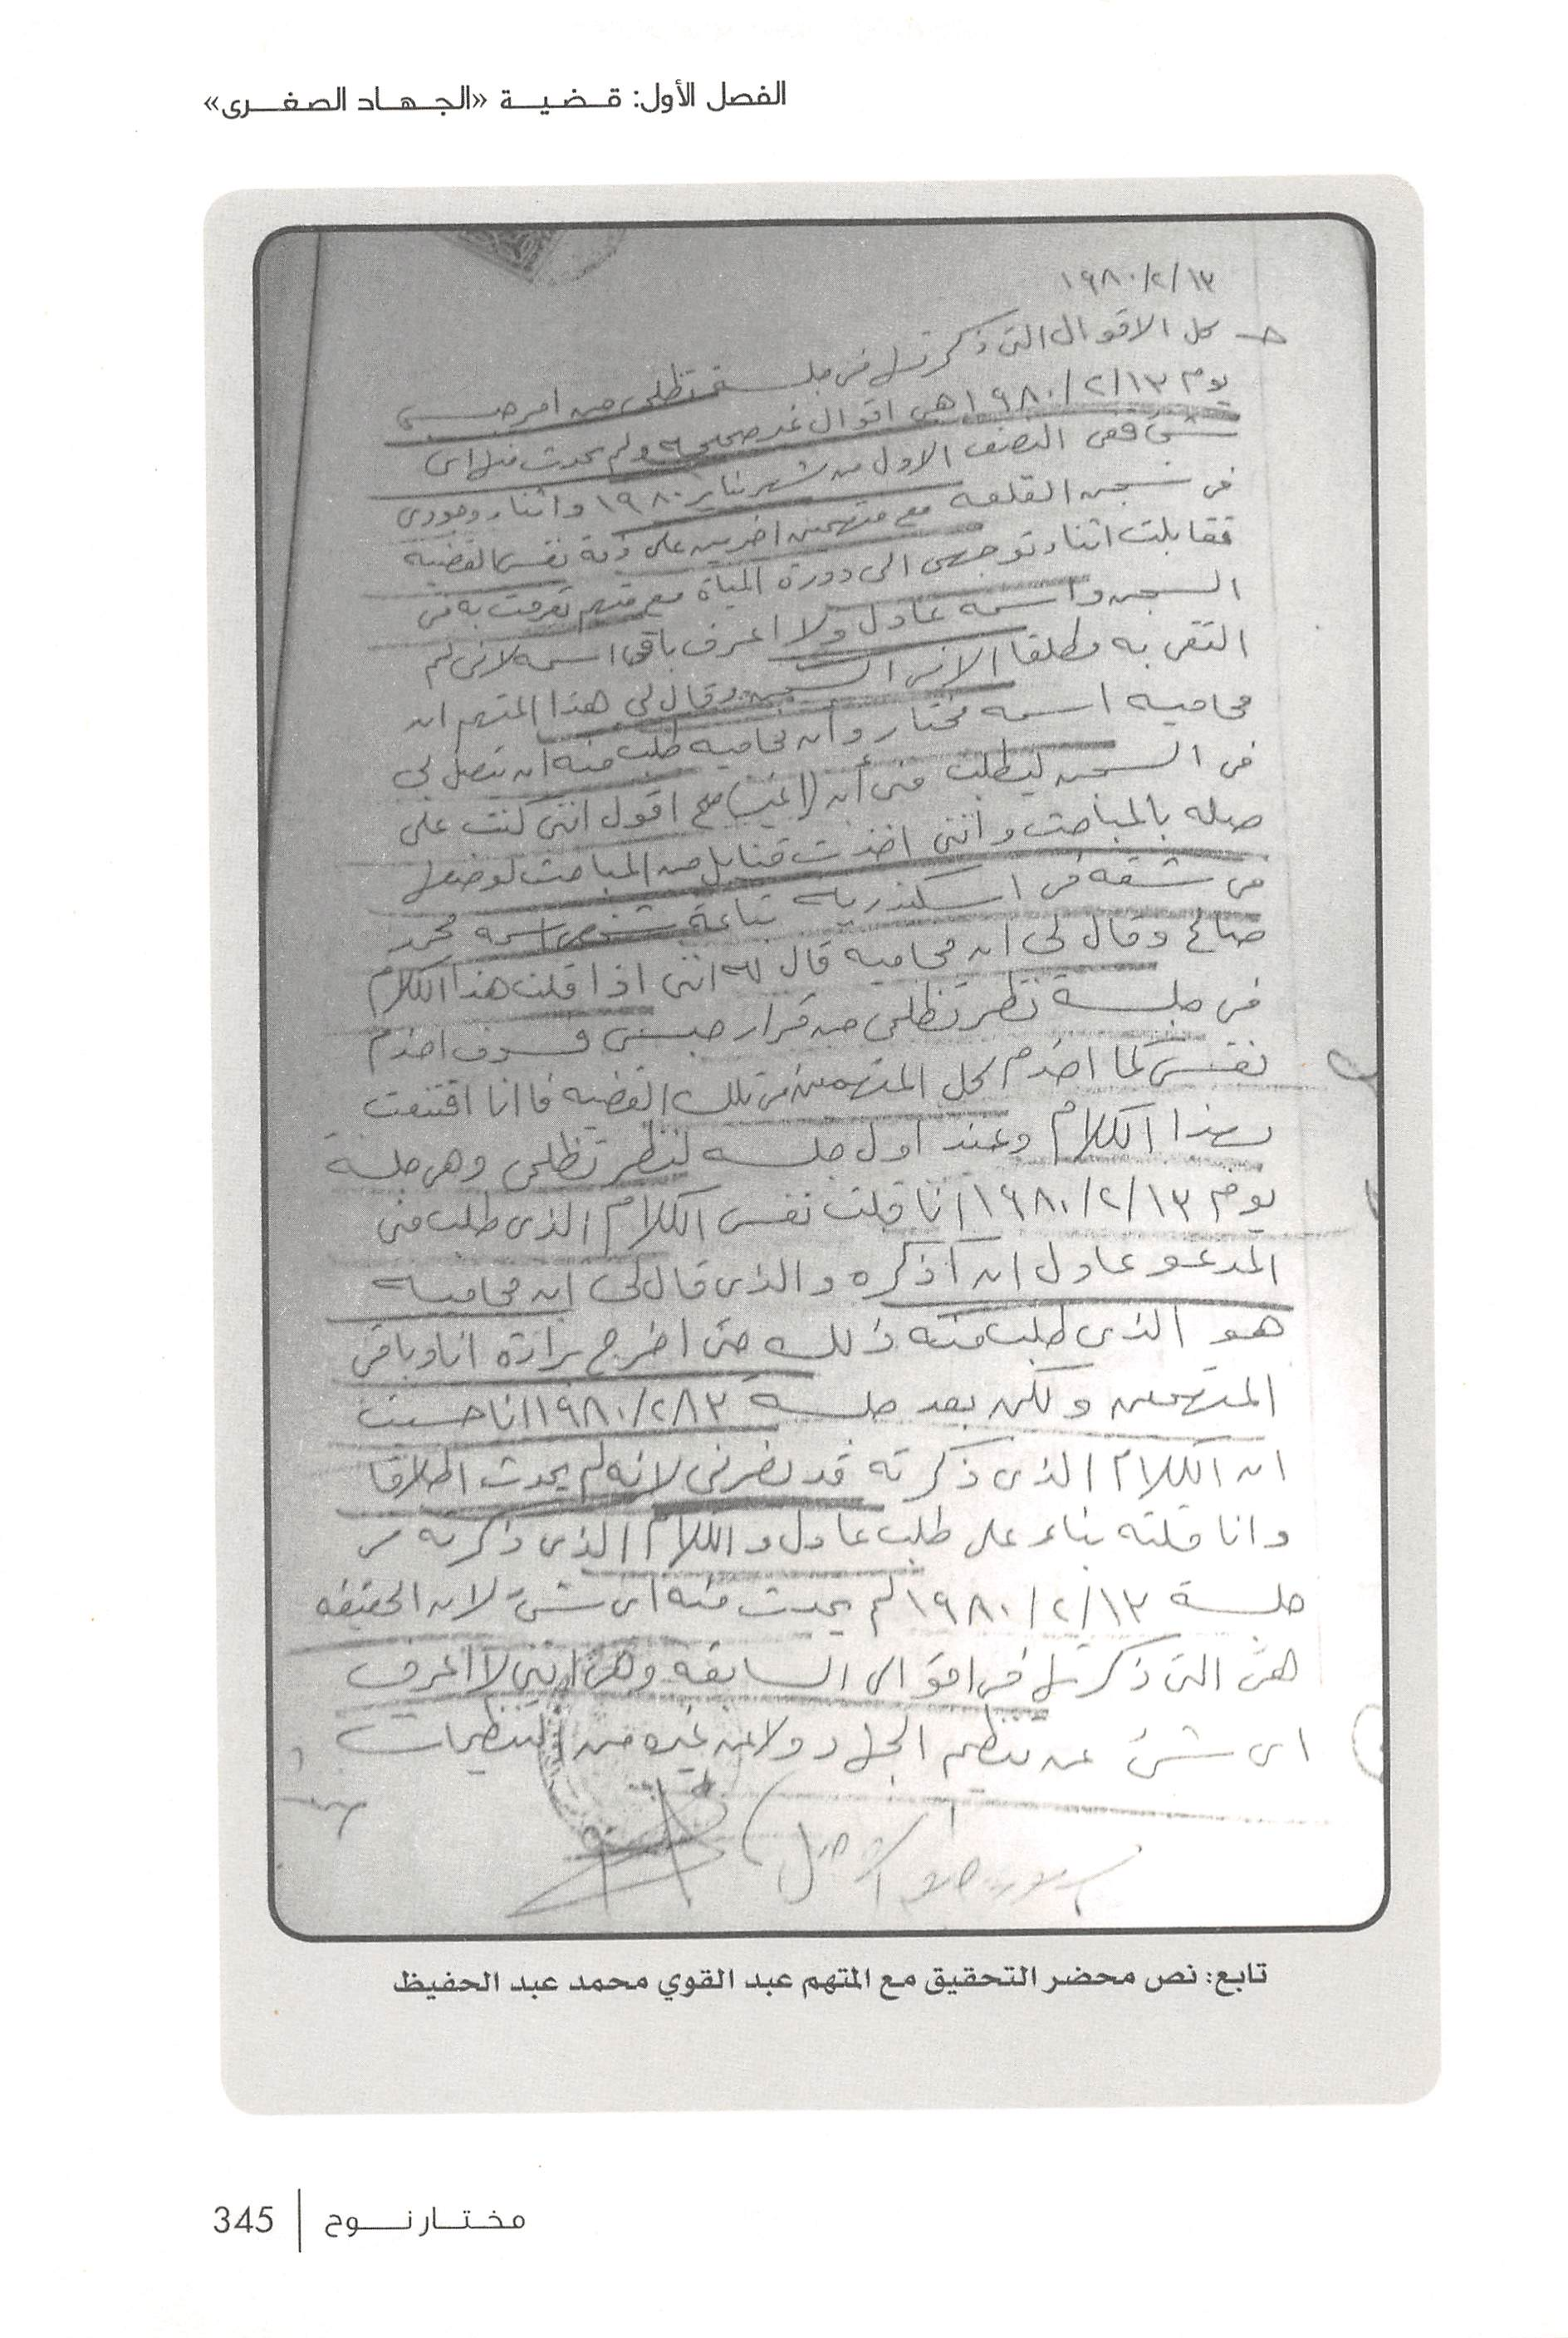 الفصل الأول: قضية «الجهاد الصغرى»
١٩٨٠/٢/١٣
جـ كل الاقوال التى ذكرتها فى جلسة تظلمى من امر حبسى
يوم ١٩٨٠/٢/١٣ هى اقوال غير صحيحه ولم يحدث منها اى
شئ ففى النصف الاول من شهر يناير ١٩٨٠ واثناء وجودى
فى سجن القلعه مع متهمين اخرين على ذمة نفس القضيه
فقابلت اثناء توجهى الى دورة المياة مع متهم تعرفت به فى
السجن واسمه عادل ولا اعرف باقى اسمه لانى لم
التقى به مطلقا الا فى السجن وقال لى هذا المتهم ان
محاميه اسمه مختار وان محاميه طلب منه ان يتصل بى
فى السجن ليطلب منى أن اقول اننى كنت على
صله بالمباحث واننى اخذت قنابل من المباحث لوضعها
فى شقه فى اسكندريه بتاعة شخص اسمه محمد
صالح وقال لى ان محاميه قال له اننى اذا قلت هذا الكلام
فى جلسة نظر تظلمى من قرار حبسى فسوف اخدم
نفسى كما اخدم كل المتهمين فى تلك القضيه فانا اقتنعت
بهذا الكلام وعند اول جلسه لنظر تظلمى وهى جلسة
يوم ١٩٨٠/٢/١٣ انا قلت نفس الكلام الذى طلب منى
المدعو عادل ان أذكره والذى قال لى ان محاميه
هو الذى طلب منه ذلك حتى اخرج براءة انا وباقى
المتهمين ولكن بعد جلسة ١٩٨٠/٢/١٣ انا حسيت
ان الكلام الذى ذكرته قد يضرنى لانه لم يحدث اطلاقا
وانا قلته بناء على طلب عادل والكلام الذى ذكرته فى
جلسة ١٩٨٠/٢/١٣ لم يحدث منه اى شئ لان الحقيقه
هى التى ذكرتها فى اقوالى السابقه وهى اننى لا اعرف
اى شئ عن تنظيم الجهاد ولا عن غيره من التنظيمات
تابع: نص محضر التحقيق مع المتهم عبد القوي محمد عبد الحفيظ
مختار نوح | 345